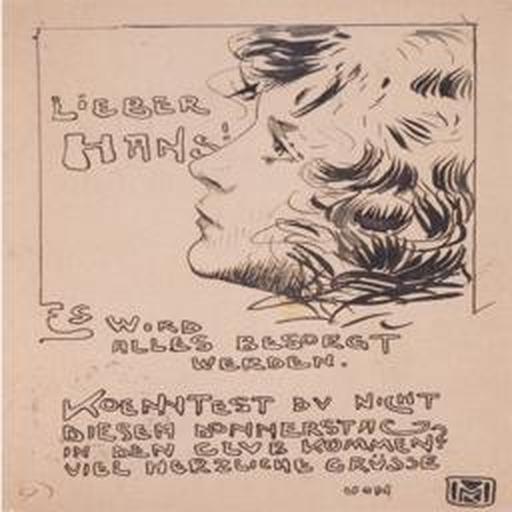 LiEBER
HANS!
ES WiRD
ALLES BESORGT
WERDEN.
KOENNTEST DV NiCHT
DIESEN DONNERSTAG
IN DEN CLVB KOMMEN?
VIEL HERZLICHE GRÜSSE
VON